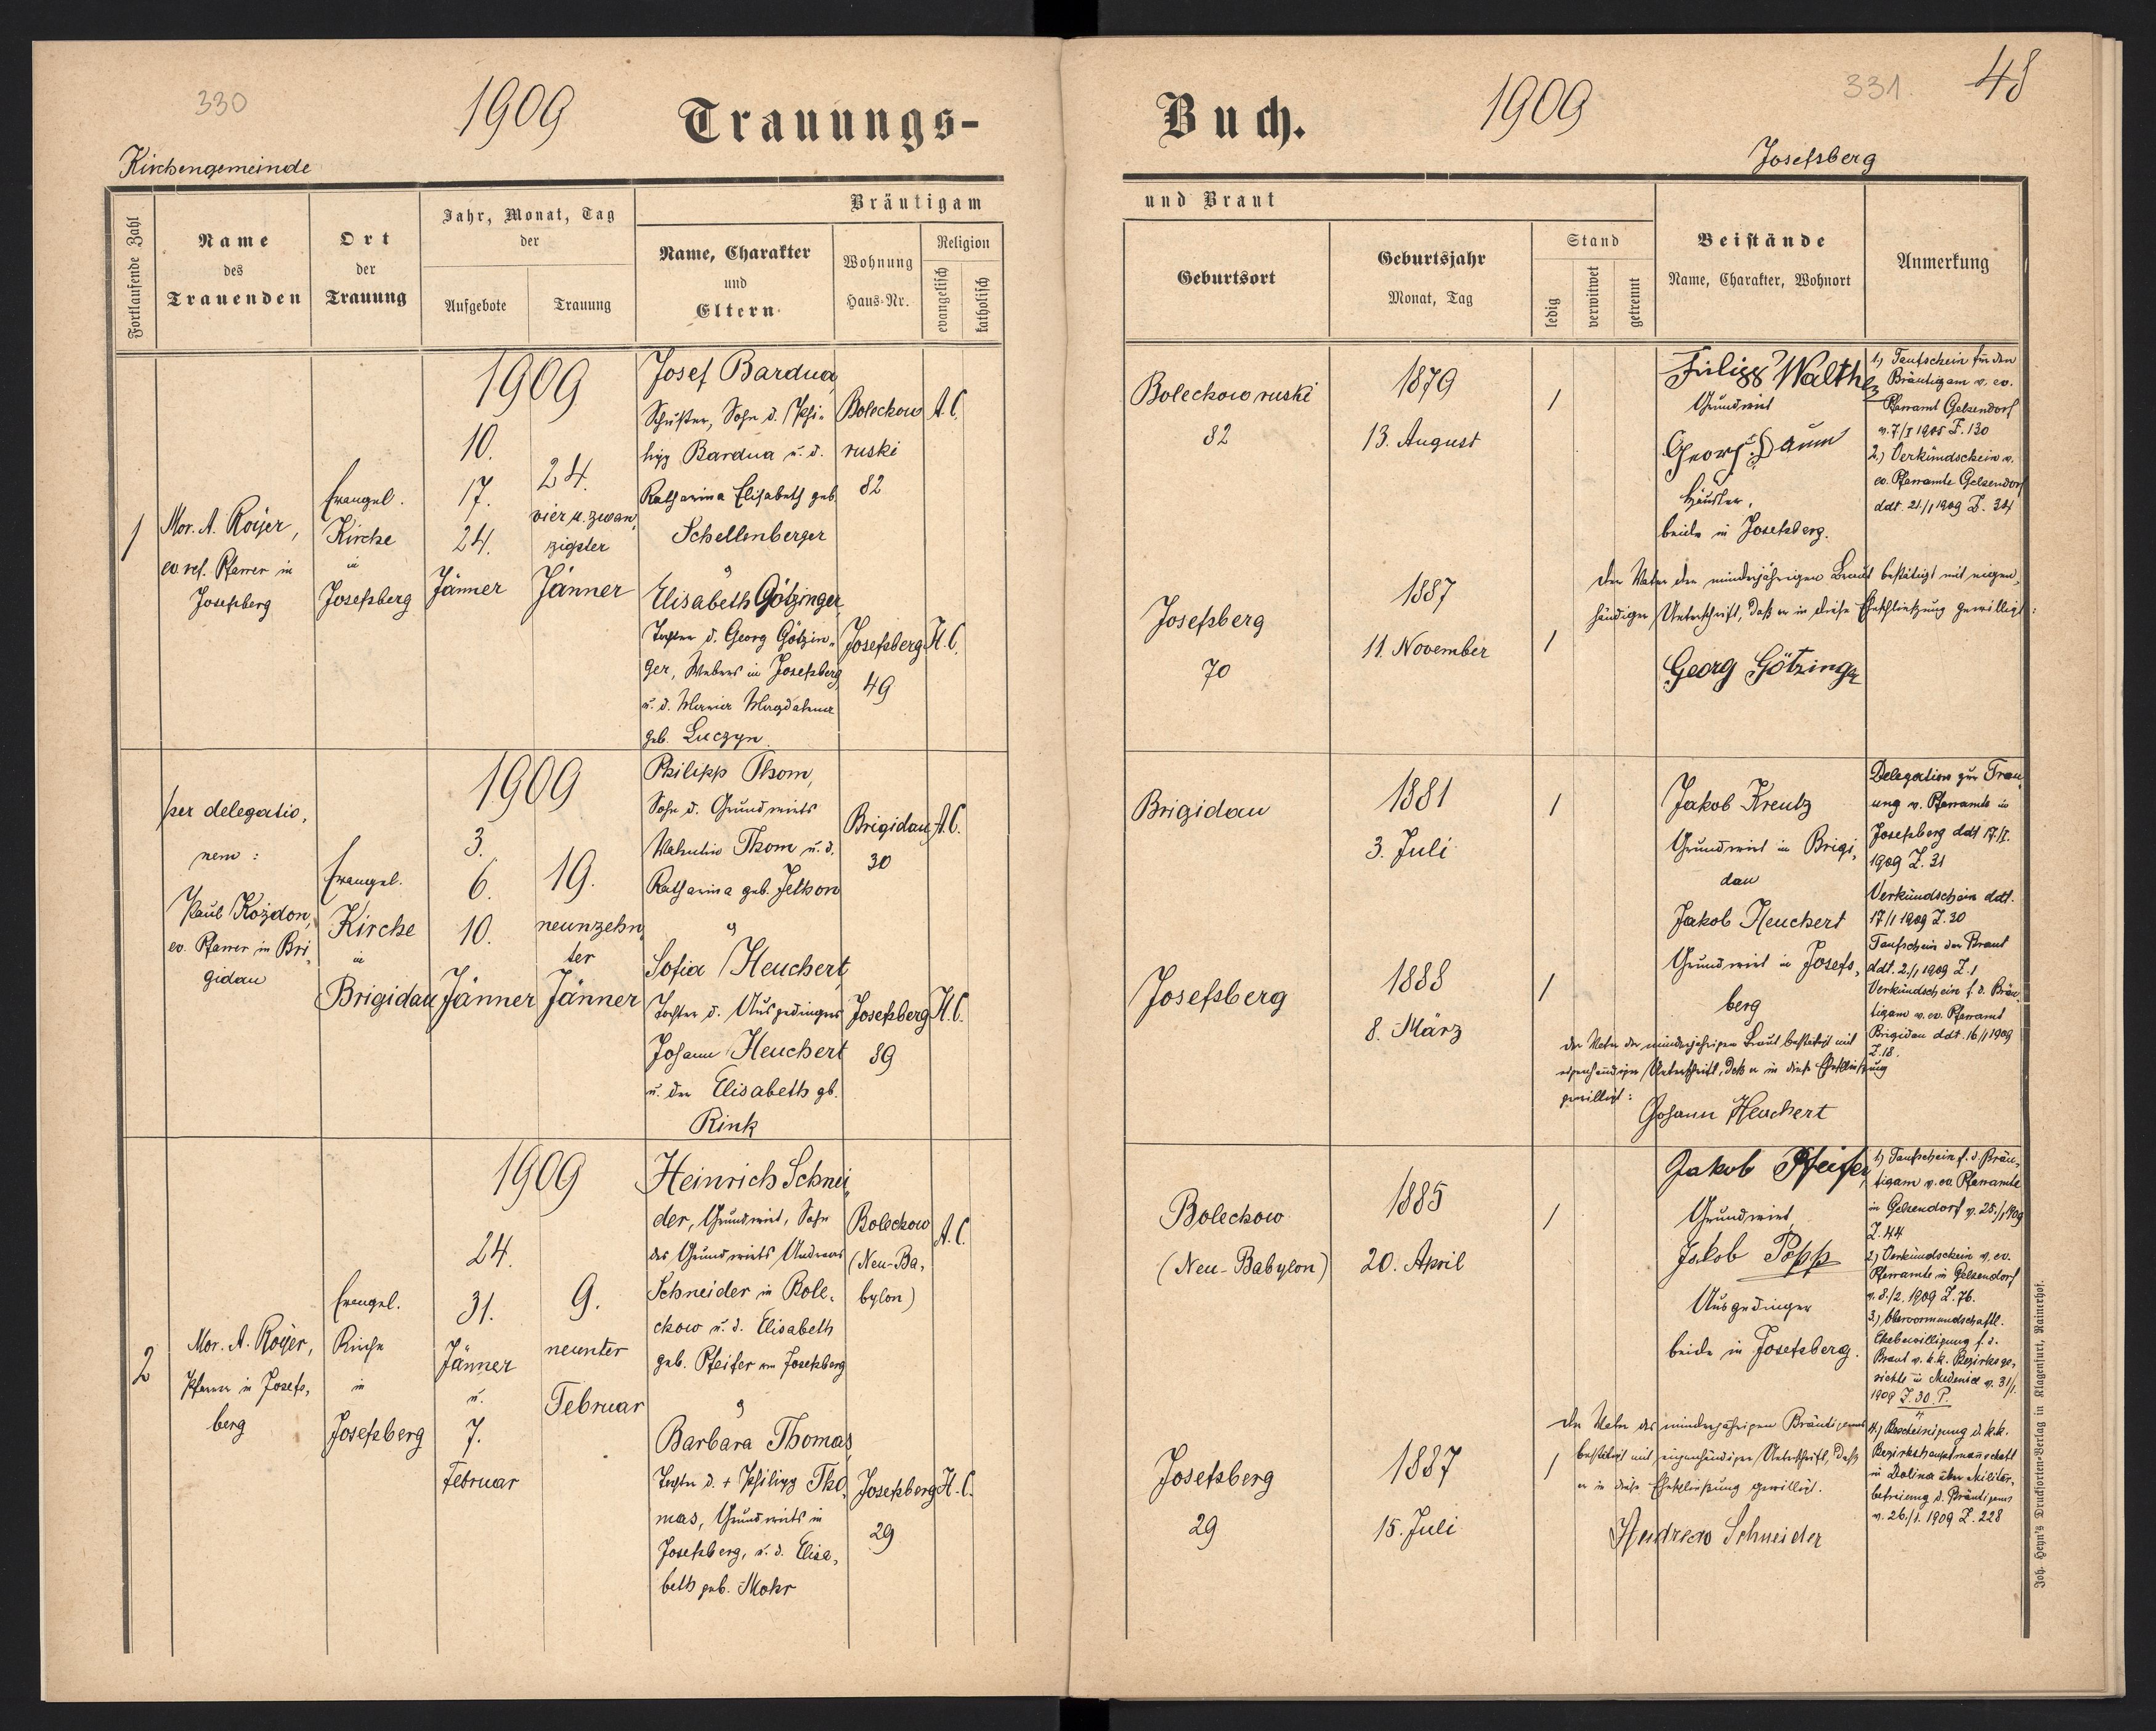 330
1909
Trauungs-
Kirchengemeinde
Fortlaufende Zahl
Name
des
Trauenden
Ort
der
Trauung
Jahr, Monat, Tag
der
Aufgebote
Trauung
Bräutigam
Name, Charakter
und
Eltern
Wohnung
Haus-Nr.
Religion
evangelisch
katholisch
1
Mor. A. Royer,
ev. ref. Pfarrer in
Josefsberg
Evangel.
Kirche
in
Josefsberg
1909
10.
17.
24.
Jänner
24.
vier u. zwan,
zigster
Jänner
Josef Bardua,
Schuster, Sohn d. Phi-
lipp Bardua u. d.
Katharina Elisabeth geb.
Schellenberger
Bolechow
ruski
82
A.C.
Elisabeth Götzinger
Tochter d. Georg Götzin-
ger, Webers in Josefsberg
u. d. Maria Magdalena
geb. Luczyn.
Josefsberg
49
H.C.
per delegatio,
nem:
Paul Kozdon,
ev. Pfarrer in Bri,
gidau
Evangel.
Kirche
in
Brigidau
1909
3.
6.
10.
Jänner
19.
neunzehn,
ter
Jänner
Philipp Thom,
Sohn d. Grundwirts
Valentin Thom u. d.
Katharina geb. Jethon
Brigidau
30
A.C.
Sofia Heuchert,
Tochter d. Ausgedingers
Johann Heuchert
u. der Elisabeth gb.
Rink
Josefsberg
89
H.C.
2
Mor. A. Royer,
Pfarrer in Josefs,
berg
Evangel.
Kirche
in
Josefsberg
1909
24.
31.
Jänner
u.
7.
Februar
9.
neunter
Februar
Heinrich Schnei,
der, Grundwirt, Sohn
des Grundwirts Andreas
Schneider in Bole,
chow u. d. Elisabeth
geb. Pfeifer in Josefsberg
Bolechow
(Neu-Ba,
bylon)
A.C.
Barbara Thomas
Tochter d. + Philipp Tho,
mas, Grundwirts in
Josefsberg, u. d. Elisa,
beth geb. Mohr
Josefsberg
29
H.C.
Buch.
1909
331.
48
Josefsberg
und Braut
Geburtsort
Geburtsjahr
Monat, Tag
Stand
ledig
verwitwet
getrennt
Beistände
Name, Charakter, Wohnort
Anmerkung
Bolechow ruski
82
1879
13. August
1
Filipp Walther
Grundwirt
Georg Daum
Häusler,
beide in Josefsberg.
1.) Taufschein für den
Bräutigam v. ev.
Pfarramt Gelsendorf
v. 7/I 1905 Z. 130
2.) Verkündschein v.
ev. Pfarramte Gelsendorf
ddt. 21./1 1909 Z. 34
Josefsberg
70
1887
11. November
1
Der Vater der minderjährigen Braut bestätigt mit eigen,
händiger Unterschrift, daß er in diese Eheschließung gewilligt:
Georg Götzinger
Brigidau
1881
3. Juli
1
Jakob Kreutz
Grundwirt in Brigi,
dau
Jakob Heuchert
Grundwirt in Josefs,
berg
Delegation zur Trau
ung v. Pfarramte in
Josefsberg ddt 17./I.
1909 Z. 31
Verkündschein ddt.
17/1 1909 Z. 30
Taufschein der Braut
ddt. 2./1 1909 Z. 1
Verkündschein f. d. Bräu,
tigam v. ev. Pfarramt
Brigidau ddt. 16/1 1909
Z. 18.
Josefsberg
1888
8. März
1
Der Vater der minderjährigen Braut bestätigt mit
eigenhändiger Unterschrift, daß er in diese Eheschließung
gewilligt:
Johann Heuchert
Bolechow
(Neu-Babylon)
1885
20. April
1
Jakob Pfeifer,
Grundwirt,
Jakob Popp
Ausgedinger
beide in Josefsberg.
1.) Taufschein f. d. Bräu,
tigam v. ev. Pfarramte
in Gelsendorf v. 25./1 1909
Z. 44
2.) Verkündschein v. ev.
Pfarramte in Gelsendorf
v. 8./2. 1909 Z. 76.
3.) Obervormundschaftl.
Ehebewilligung f. d.
Braut v. k.k. Bezirksge,
richte in Medenice v. 31/1.
1909 Z. 30 P.
4.) Bescheinigung d. k.k.
Bezirkshauptmannschaft
in Dolina über Militär,
befreiung d. Bräutigams
v. 26./1. 1909 Z. 228
Josefsberg
29
1887
15. Juli
1
Der Vater des minderjährigen Bräutigams
bestätigt mit eigenhändiger Unterschrift, daß
er in diese Eheschließung gewilligt.
Andreas Schneider
Joh. Heyn's Drucksorten-Verlag in Klagenfurt, Rainerhof.